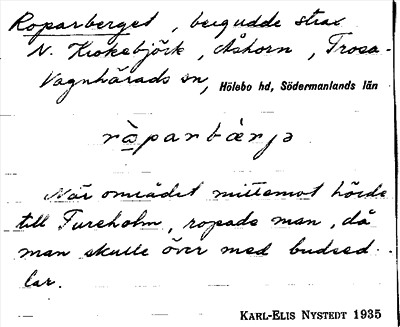 Roparberget, bergudde strax
N. Krokebjörk, Åshorn, Trosa-
Vagnhärads sn, Hölebo hd, Södermanlands län
ràparbærjə
När området mittemot hörde
till Tureholm, ropade man, då
man skulle över med budsed-
lar.
KARL-ELIS NYSTEDT 1935